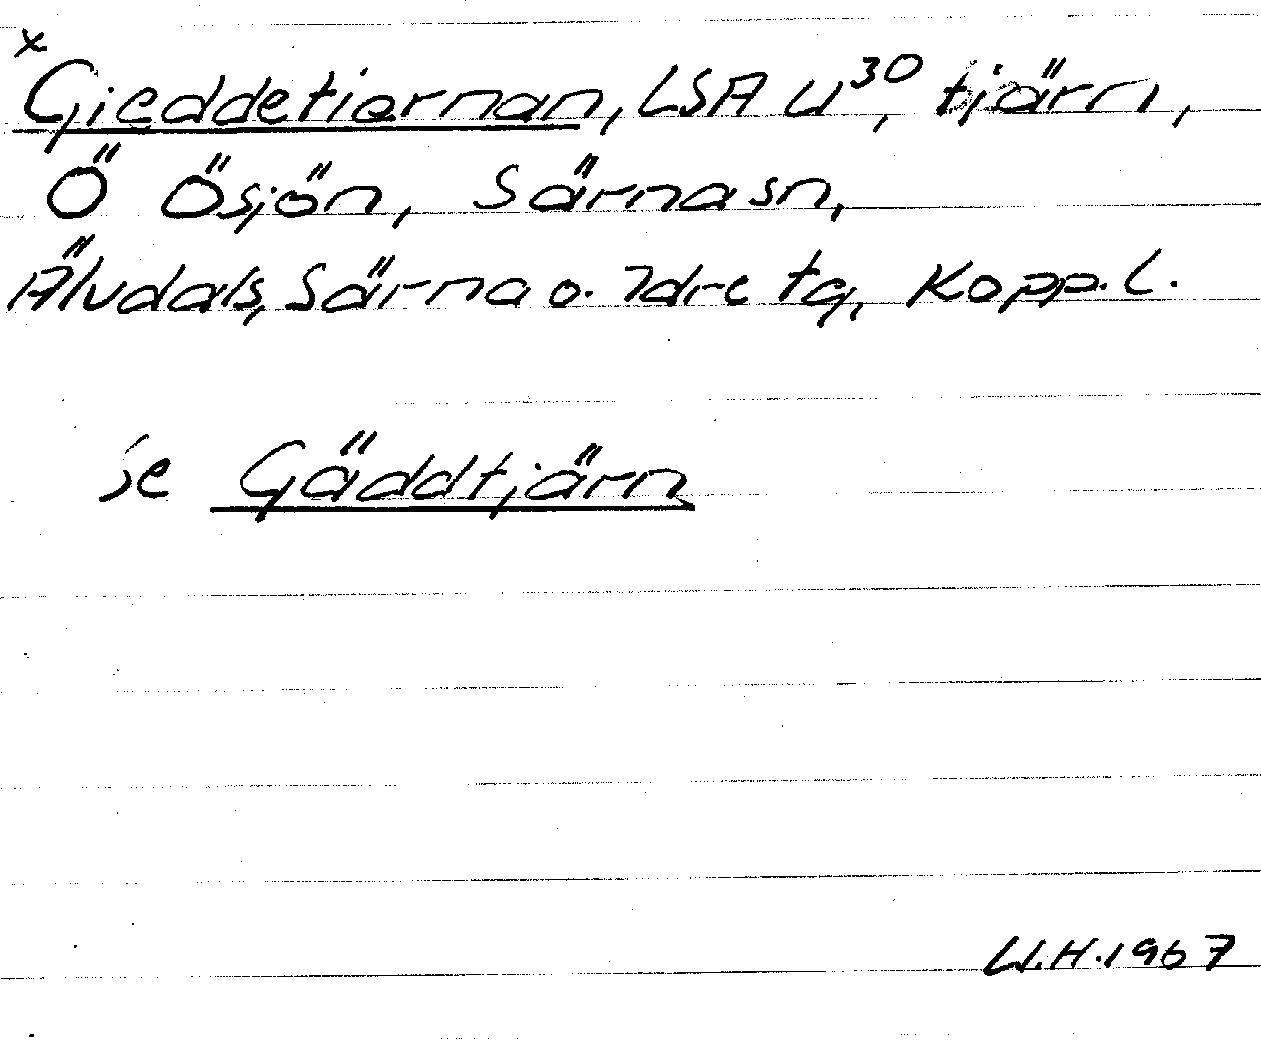 x
Gieddetiernan, LSA U³⁰, tjärn,
Ö Ösjön, Särna sn,
Älvdals, Särna o. Idre tg, Kopp. l.
se Gäddtjärn
W.H. 1967